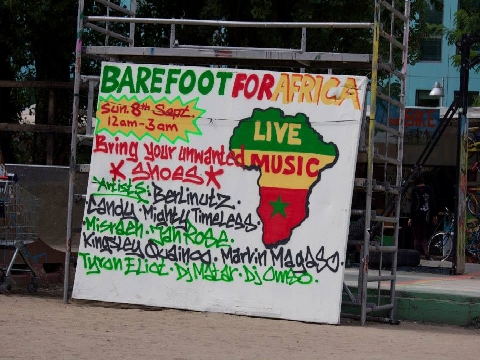 BAREFOOT FOR AFRICA
Sun. 8th Sept.
12am-3am
Bring your unwanted
*SHOES*
LIVE
MUSIC
Artists: Berlinutz.
Candy. Mighty Timeless.
Misreen. Jah Rose.
Kingsley Okdingo. Marvin Magaso.
Tyron Eliot. Dj Matar. Dj Omso.